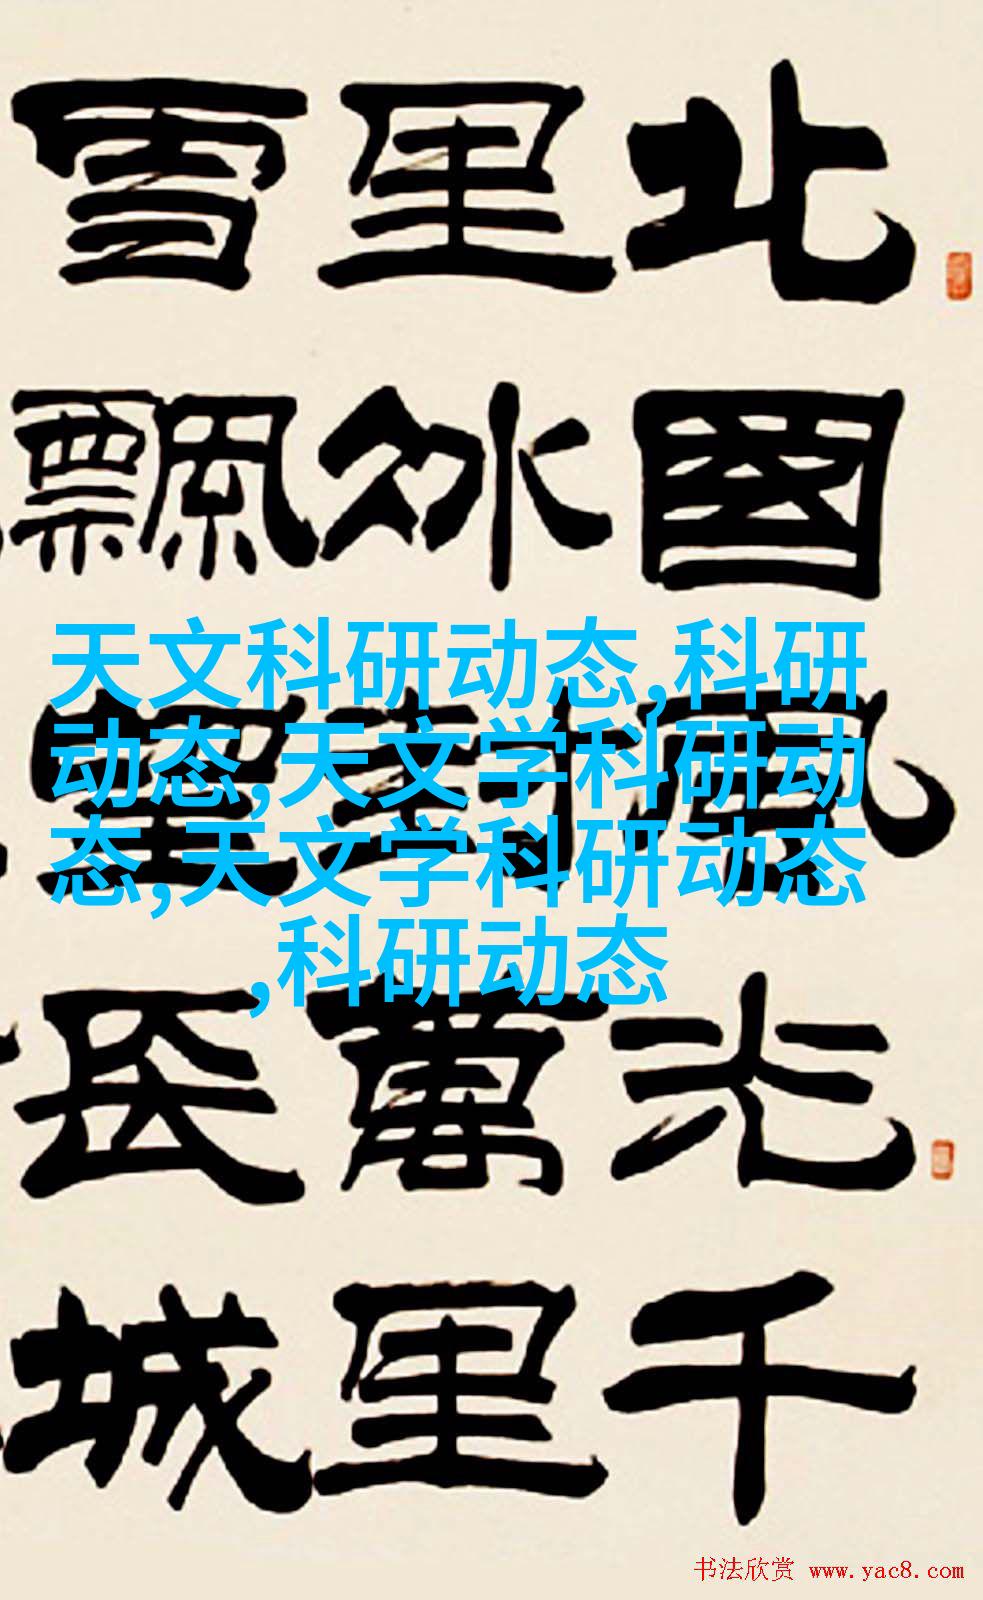 北國風光千
里冰封萬里
雪飄望長城
天文科研动态,科研
动态,天文学科研动
态,天文学科研动态
,科研动态
书法欣赏 www.yac8.com